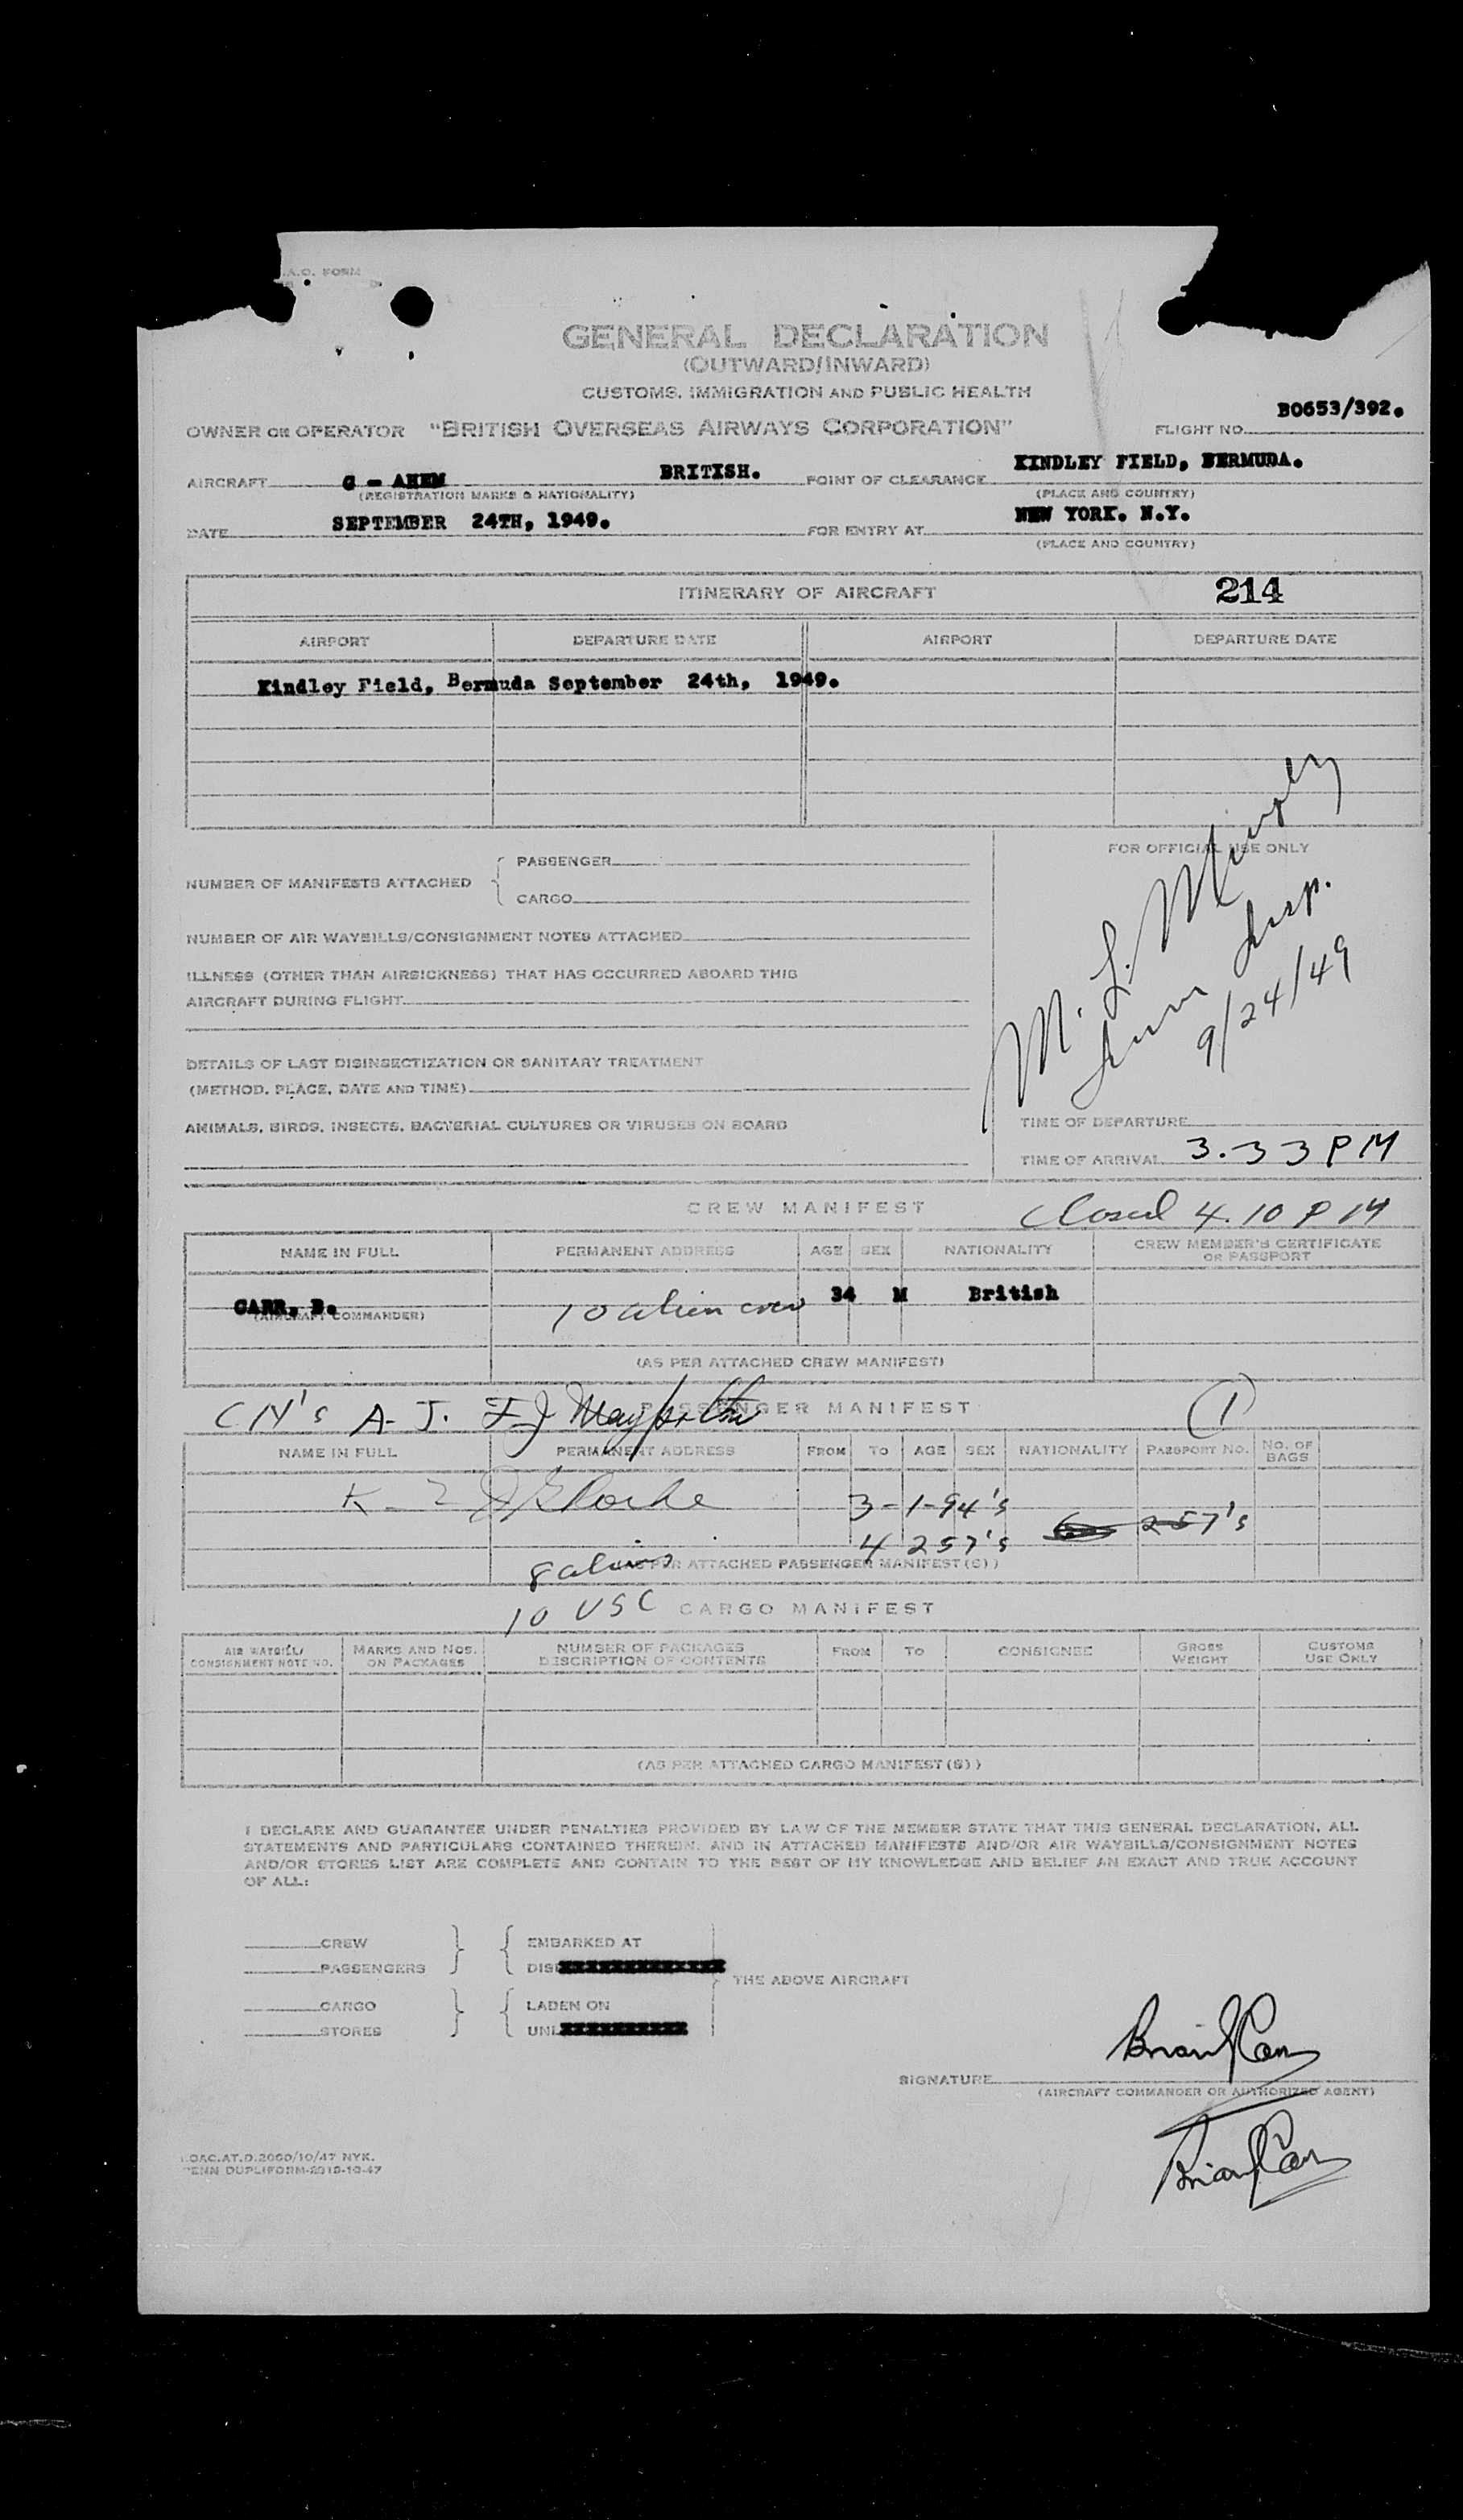 A.O. FORM
GENERAL DECLARATION
(OUTWARD/INWARD)
CUSTOMS, IMMIGRATION AND PUBLIC HEALTH
OWNER OR OPERATOR "BRITISH OVERSEAS AIRWAYS CORPORATION" FLIGHT NO. BO653/392.
AIRCRAFT G - AHEM BRITISH. POINT OF CLEARANCE KINDLEY FIELD, BERMUDA.
(REGISTRATION MARKS & NATIONALITY) (PLACE AND COUNTRY)
DATE SEPTEMBER 24TH, 1949. FOR ENTRY AT NEW YORK. N.Y.
(PLACE AND COUNTRY)
ITINERARY OF AIRCRAFT 214
AIRPORT DEPARTURE DATE AIRPORT DEPARTURE DATE
Kindley Field, Bermuda September 24th, 1949.
FOR OFFICIAL USE ONLY
NUMBER OF MANIFESTS ATTACHED PASSENGER
CARGO
NUMBER OF AIR WAYBILLS/CONSIGNMENT NOTES ATTACHED
ILLNESS (OTHER THAN AIRSICKNESS) THAT HAS OCCURRED ABOARD THIS
AIRCRAFT DURING FLIGHT
M. L.
Insp.
9/24/49
DETAILS OF LAST DISINSECTIZATION OR SANITARY TREATMENT
(METHOD, PLACE, DATE AND TIME)
ANIMALS, BIRDS, INSECTS, BACTERIAL CULTURES OR VIRUSES ON BOARD
TIME OF DEPARTURE
TIME OF ARRIVAL 3.33 PM
CREW MANIFEST Closed 4.10 PM
NAME IN FULL PERMANENT ADDRESS AGE SEX NATIONALITY CREW MEMBER'S CERTIFICATE OR PASSPORT
CARR, B. 10 alien crew 34 M British
(AIRCRAFT COMMANDER)
(AS PER ATTACHED CREW MANIFEST)
CM's A-J. F J PASSENGER MANIFEST (1)
NAME IN FULL PERMANENT ADDRESS FROM TO AGE SEX NATIONALITY PASSPORT NO. NO. OF BAGS
K-Z 3-1-94's
4 257's 257's
8 aliens (AS PER ATTACHED PASSENGER MANIFEST(S))
10 USC CARGO MANIFEST
AIR WAYBILL/ CONSIGNMENT NOTE NO. MARKS AND NOS. ON PACKAGES NUMBER OF PACKAGES DESCRIPTION OF CONTENTS FROM TO CONSIGNEE GROSS WEIGHT CUSTOMS USE ONLY
(AS PER ATTACHED CARGO MANIFEST(S))
I DECLARE AND GUARANTEE UNDER PENALTIES PROVIDED BY LAW OF THE MEMBER STATE THAT THIS GENERAL DECLARATION, ALL
STATEMENTS AND PARTICULARS CONTAINED THEREIN, AND IN ATTACHED MANIFESTS AND/OR AIR WAYBILLS/CONSIGNMENT NOTES
AND/OR STORES LIST ARE COMPLETE AND CONTAIN TO THE BEST OF MY KNOWLEDGE AND BELIEF AN EXACT AND TRUE ACCOUNT
OF ALL:
CREW EMBARKED AT
PASSENGERS DIS
THE ABOVE AIRCRAFT
CARGO LADEN ON
STORES UNL
Brian Carr
SIGNATURE
(AIRCRAFT COMMANDER OR AUTHORIZED AGENT)
Brian Carr
OAC.AT.D.2060/10/47 NYK.